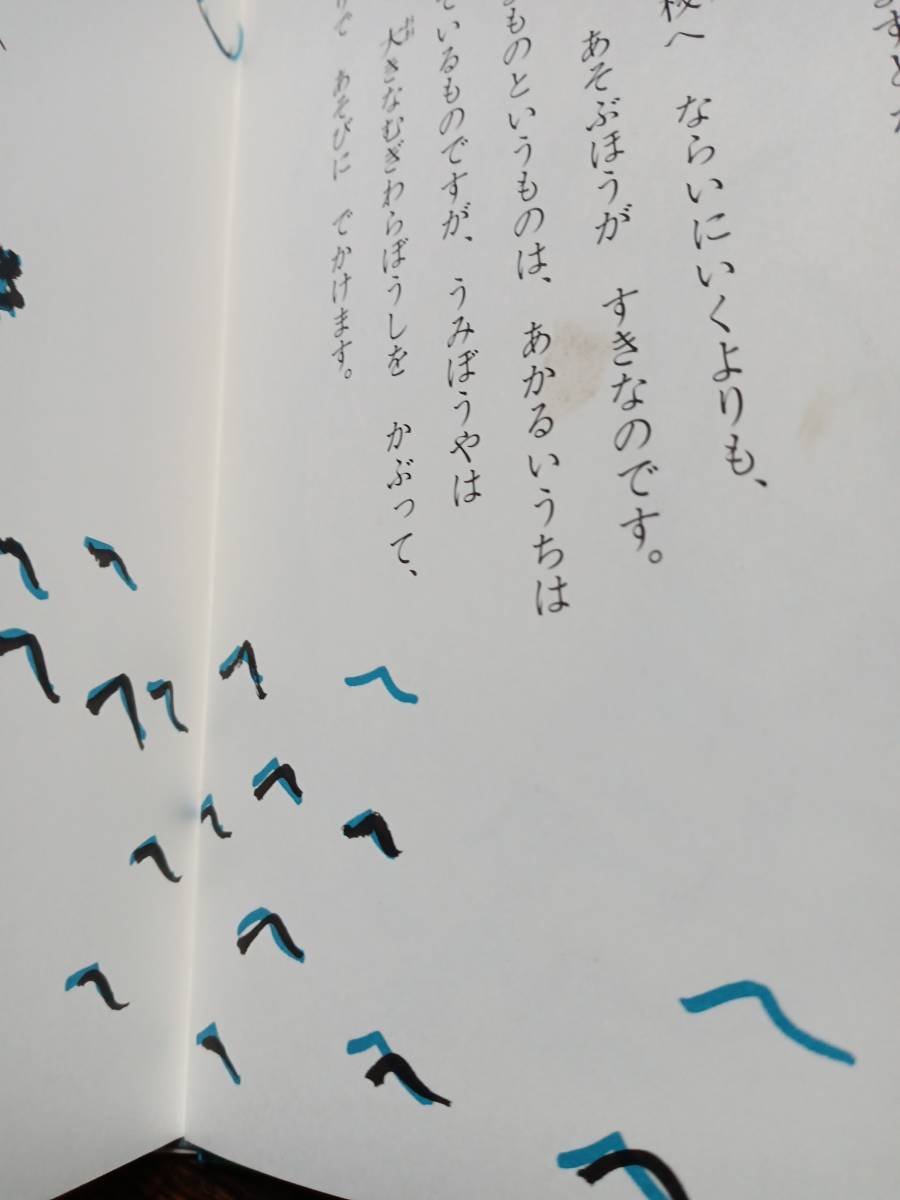 ますとが
校へ ならいにいくよりも、
あそぶほうが すきなのです。
ものというものは、 あかるいうちは
ているものですが、 うみぼうやは
大きなむぎわらぼうしを かぶって、
おお
で あそびに でかけます。